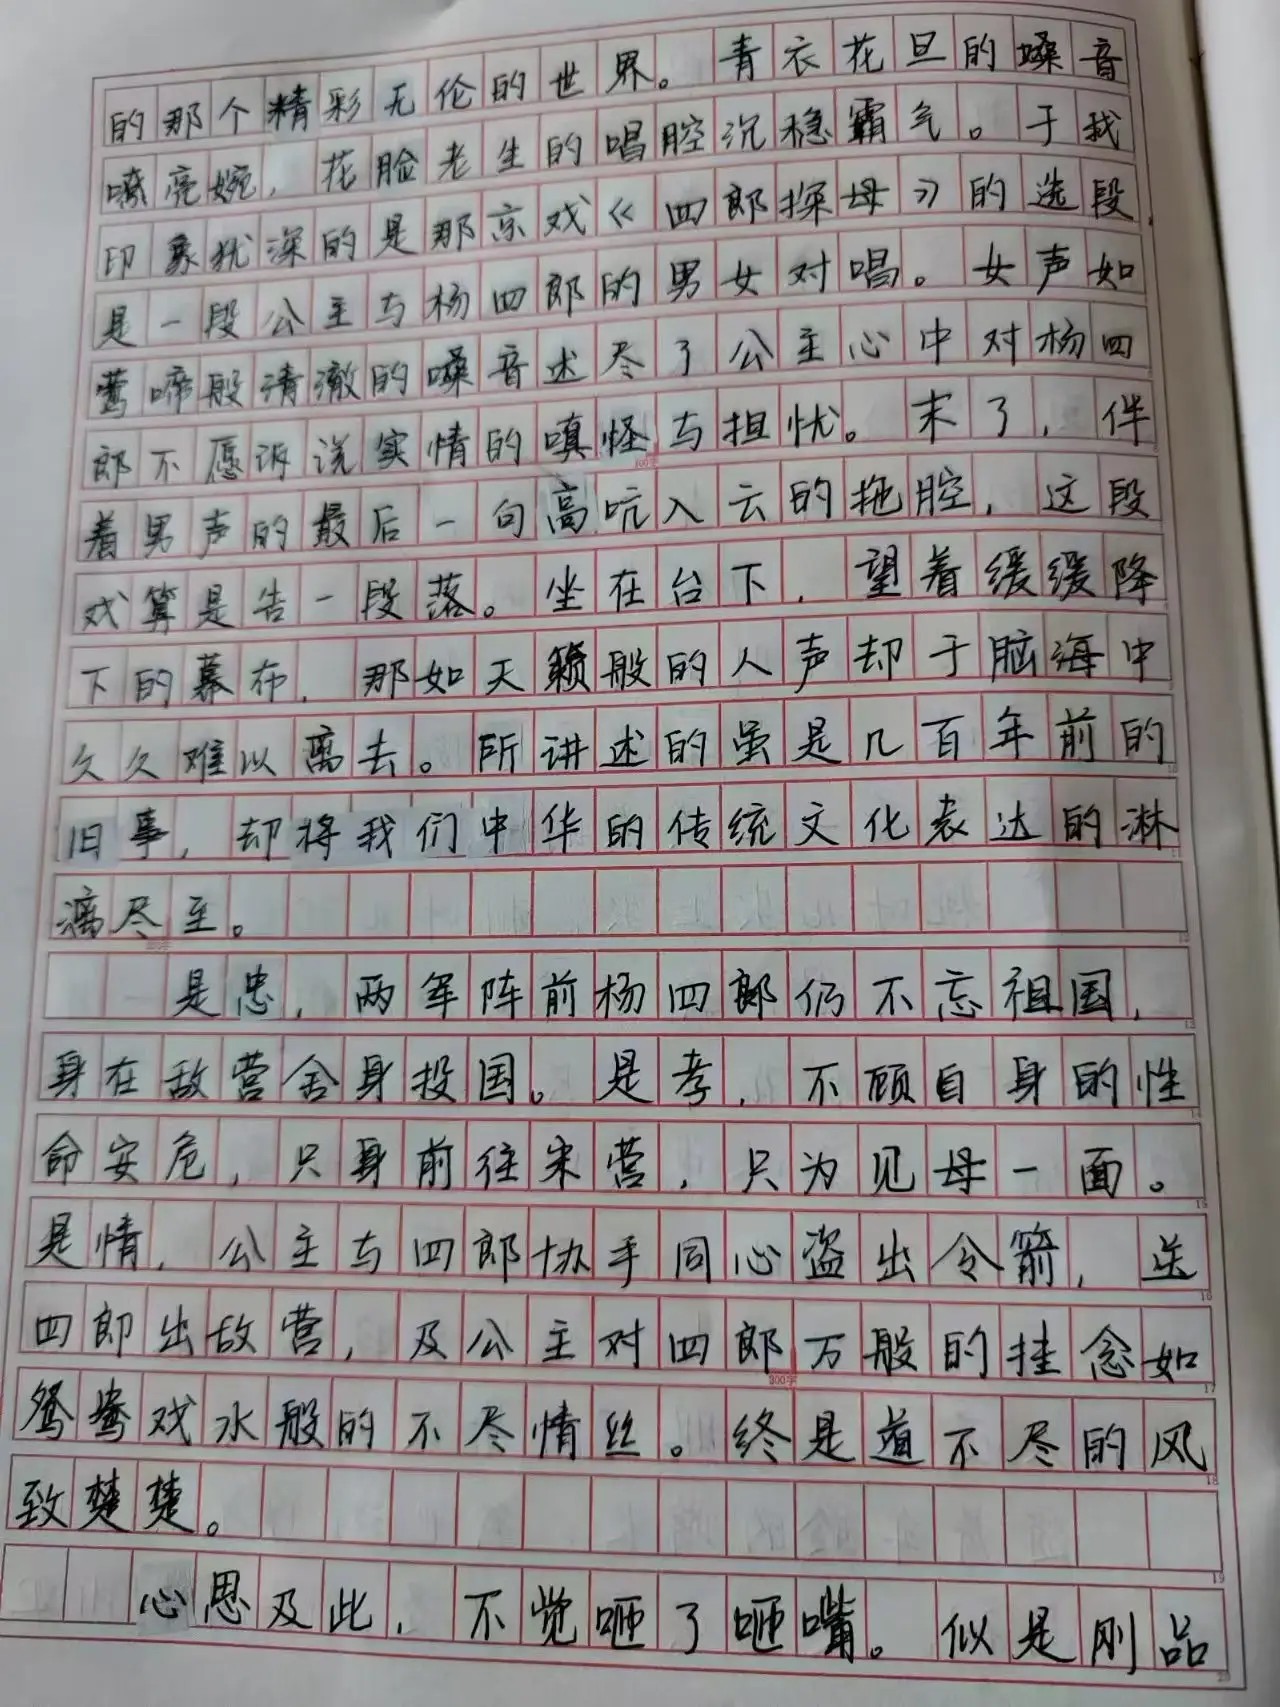 的那个精彩无伦的世界。青衣花旦的嗓音
嘹亮婉，花脸老生的唱腔沉稳霸气。于我
印象犹深的是那京戏《四郎探母》的选段，
是一段公主与杨四郎的男女对唱。女声如
莺啼般清澈的嗓音述尽了公主心中对杨四
郎不愿诉说实情的嗔怪与担忧。末了，伴
着男声的最后一句高吭入云的拖腔，这段
戏算是告一段落。坐在台下，望着缓缓降
下的幕布，那如天籁般的人声却于脑海中
久久难以离去。所讲述的虽是几百年前的
旧事，却将我们中华的传统文化表达的淋
漓尽至。
是忠，两军阵前杨四郎仍不忘祖国，
身在敌营舍身投国。是孝，不顾自身的性
命安危，只身前往宋营，只为见母一面。
是情，公主与四郎协手同心盗出令箭，送
四郎出敌营，及公主对四郎万般的挂念如
鸳鸯戏水般的不尽情丝。终是道不尽的风
致楚楚。
心思及此，不觉咂了咂嘴。似是刚品
100字
200字
300字